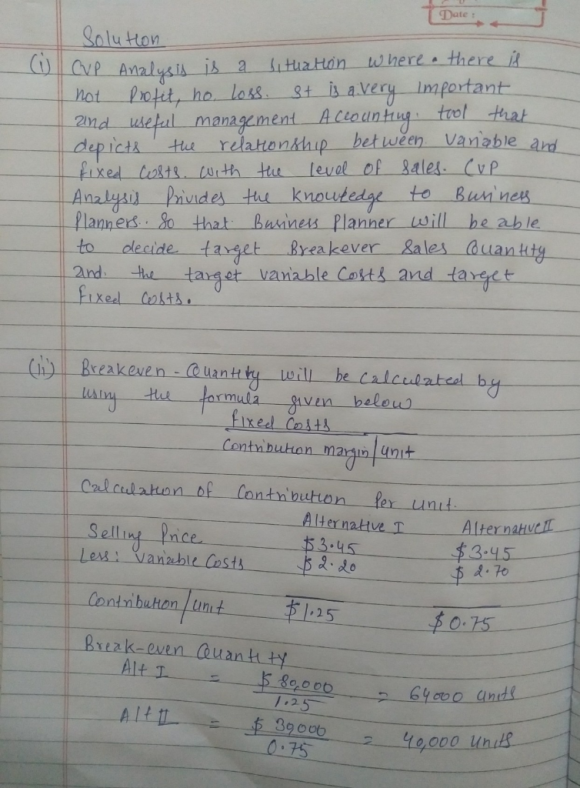 Date :
Solution
(i) CVP Analysis is a situation where. there is
not Profit, no. Loss. It is a very important
and useful management Accounting tool that
depicts the relationship between variable and
fixed costs. with the level of sales. CVP
Analysis Privides the knowledge to Business
Planners. So that Business Planner will be able
to decide target Breakever Sales Quantity
and. the target variable Costs and target
fixed Costs.
(ii) Breakeven - Quantity will be calculated by
using the formula given below
fixed Costs
Contribution margin/unit
Calculation of Contribution Per unit.
Alternative I Alternative II
Selling Price $3.45 $3.45
Less: Variable Costs $2.20 $2.70
Contribution/unit $1.25 $0.75
Break-even Quantity
Alt I = $80,000 / 1.25 = 64000 units
Alt II = $30000 / 0.75 = 40,000 units